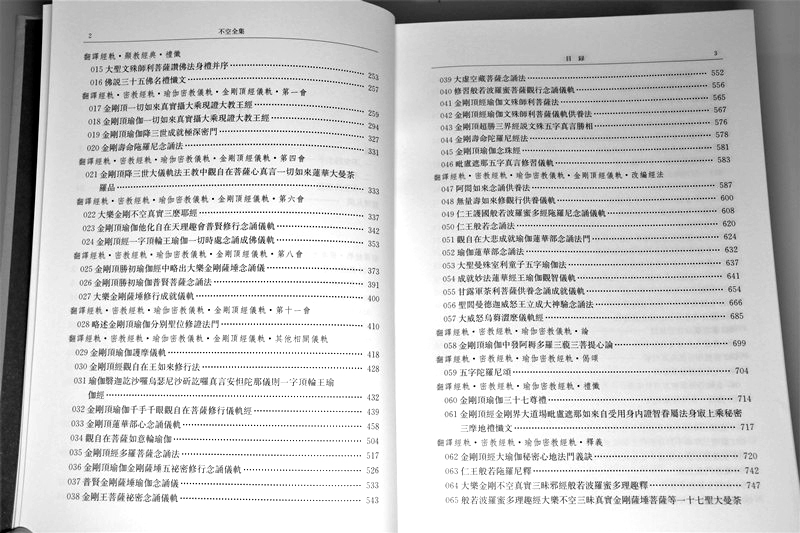 2 不空全集
翻譯經軌·顯教經典·禮懺
015 大聖文殊師利菩薩讚佛法身禮并序 253
016 佛説三十五佛名禮懺文 257
翻譯經軌·密教經軌·瑜伽密教儀軌·金剛頂經儀軌·第一會
017 金剛頂一切如來真實攝大乘現證大教王經 259
018 金剛頂瑜伽一切如來真實攝大乘現證大教王經 294
019 金剛頂瑜伽降三世成就極深密門 327
020 金剛壽命陁羅尼念誦法 331
翻譯經軌·密教經軌·瑜伽密教儀軌·金剛頂經儀軌·第四會
021 金剛頂降三世大儀軌法王教中觀自在菩薩心真言一切如來蓮華大曼荼
羅品 333
翻譯經軌·密教經軌·瑜伽密教儀軌·金剛頂經儀軌·第六會
022 大樂金剛不空真實三麽耶經 337
023 金剛頂瑜伽他化自在天理趣會普賢修行念誦儀軌 342
024 金剛頂經一字頂輪王瑜伽一切時處念誦成佛儀軌 353
翻譯經軌·密教經軌·瑜伽密教儀軌·金剛頂經儀軌·第八會
025 金剛頂勝初瑜伽經中略出大樂金剛薩埵念誦儀 373
026 金剛頂勝初瑜伽普賢菩薩念誦法 391
027 大樂金剛薩埵修行成就儀軌 400
翻譯經軌·密教經軌·瑜伽密教儀軌·金剛頂經儀軌·第十一會
028 略述金剛頂瑜伽分別聖位修證法門 410
翻譯經軌·密教經軌·瑜伽密教儀軌·金剛頂經儀軌·其他相關儀軌
029 金剛頂瑜伽護摩儀軌 418
030 金剛頂經觀自在王如來修行法 428
031 瑜伽翳迦訖沙囉烏瑟尼沙斫訖囉真言安怛陀那儀則一字頂輪王瑜
伽經 432
032 金剛頂瑜伽千手千眼觀自在菩薩修行儀軌經 439
033 金剛頂蓮華部心念誦儀軌 458
034 觀自在菩薩如意輪瑜伽 504
035 金剛頂經多羅菩薩念誦法 517
036 金剛頂瑜伽金剛薩埵五祕密修行念誦儀軌 526
037 普賢金剛薩埵瑜伽念誦儀 533
038 金剛王菩薩祕密念誦儀軌 543
目録 3
039 大虛空藏菩薩念誦法 552
040 修習般若波羅蜜菩薩觀行念誦儀軌 556
041 金剛頂經瑜伽文殊師利菩薩法 565
042 金剛頂經瑜伽文殊師利菩薩儀軌供養法 567
043 金剛頂超勝三界經説文殊五字真言勝相 576
044 金剛壽命陀羅尼經法 578
045 金剛頂瑜伽念珠經 581
046 毗盧遮那五字真言修習儀軌 583
翻譯經軌·密教經軌·瑜伽密教儀軌·金剛頂經儀軌·改編經法
047 阿閦如來念誦供養法 587
048 無量壽如來修觀行供養儀軌 600
049 仁王護國般若波羅蜜多經陁羅尼念誦儀軌 608
050 仁王般若念誦法 620
051 觀自在大悲成就瑜伽蓮華部念誦法門 624
052 瑜伽蓮華部念誦法 632
053 大聖曼殊室利童子五字瑜伽法 637
054 成就妙法蓮華經王瑜伽觀智儀軌 641
055 甘露軍荼利菩薩供養念誦成就儀軌 654
056 聖閻曼德迦威怒王立成大神驗念誦法 666
057 大威怒烏芻澀麽儀軌經 685
翻譯經軌·密教經軌·瑜伽密教儀軌·論
058 金剛頂瑜伽中發阿耨多羅三藐三菩提心論 699
翻譯經軌·密教經軌·瑜伽密教經軌·偈頌
059 五字陀羅尼頌 704
翻譯經軌·密教經軌·瑜伽密教經軌·禮懺
060 金剛頂瑜伽三十七尊禮 714
061 金剛頂經金剛界大道場毗盧遮那如來自受用身内證智眷屬法身異名佛最上乘秘密
三摩地禮懺文 717
翻譯經軌·密教經軌·瑜伽密教經軌·釋義
062 金剛頂經大瑜伽秘密心地法門義訣 720
063 仁王般若陁羅尼釋 742
064 大樂金剛不空真實三昧邪經般若波羅蜜多理趣釋 747
065 般若波羅蜜多理趣經大樂不空三昧真實金剛薩埵菩薩等一十七聖大曼荼